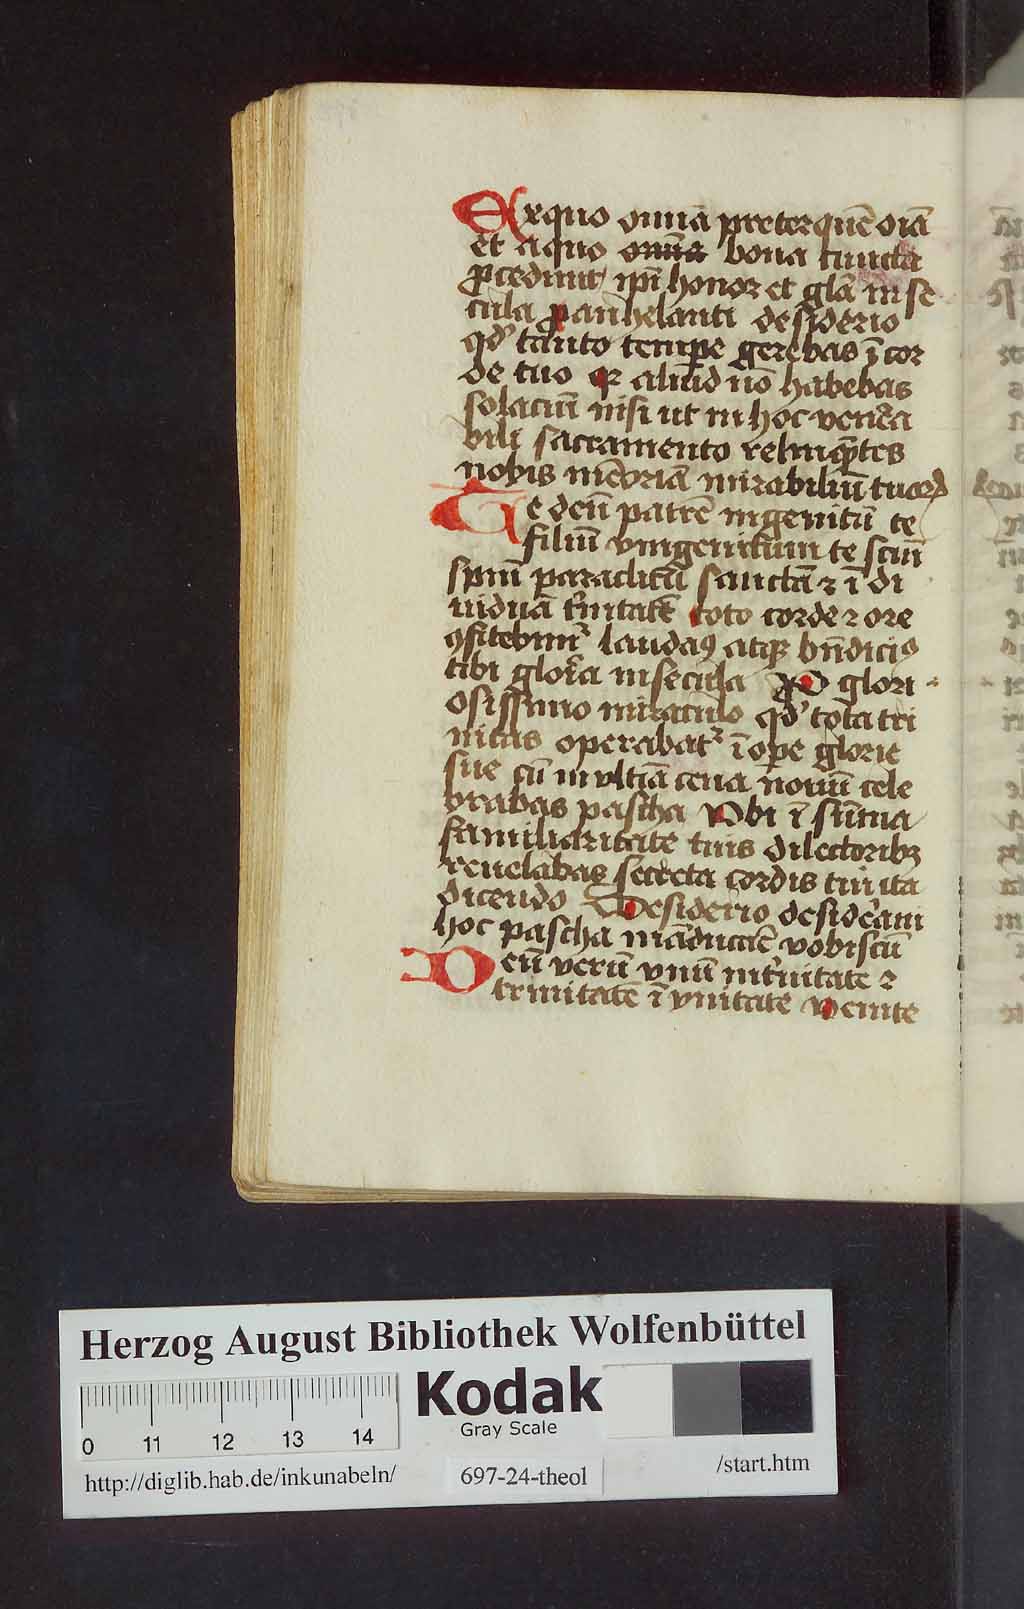 Exquo om̄ia preter quē oīa
et aquo om̄ia bona cuncta
ꝓcedunt ip̄i honor et glā in se
cula ꝓ anhelanti desiderio
qd̕ tanto tempe gerebas ī cor
de tuo qꝛ aliud nō habebas
solaciū nisi ut in hoc ven̄a
bili sacramento relinq̄tes
nobis mēoriā mirabiliū tuoꝝ
Te deū patrē ingenitū te
filiū vnigenitum te scūī
spm̄ paraclitū sanctā ⁊ ī di
uiduā t̕nitatē toto corde ⁊ ore
ꝯfitebim̕ laudaꝯ atqꝫ bn̄diciꝯ
tibi gloria in secula Pro glori
osissimo miraculo qd̕ tota tri
nitas operabat᷑ ī oꝑe glorie
sue cū in vltīa cena nouū cele
brabas pascha Vbi ī sūma
familiaritate tuis dilectoribꝫ
reuelabas secreta cordis tui ita
dicendo Desiderio desid̕aui
hoc pascha māducāe vobiscū
Deū verū vnū in t̕nitate ⁊
trinitatē ī vnitate Venite
Herzog August Bibliothek Wolfenbüttel
Kodak
Gray Scale
0 11 12 13 14
http://diglib.hab.de/inkunabeln/
697-24-theol
/start.htm